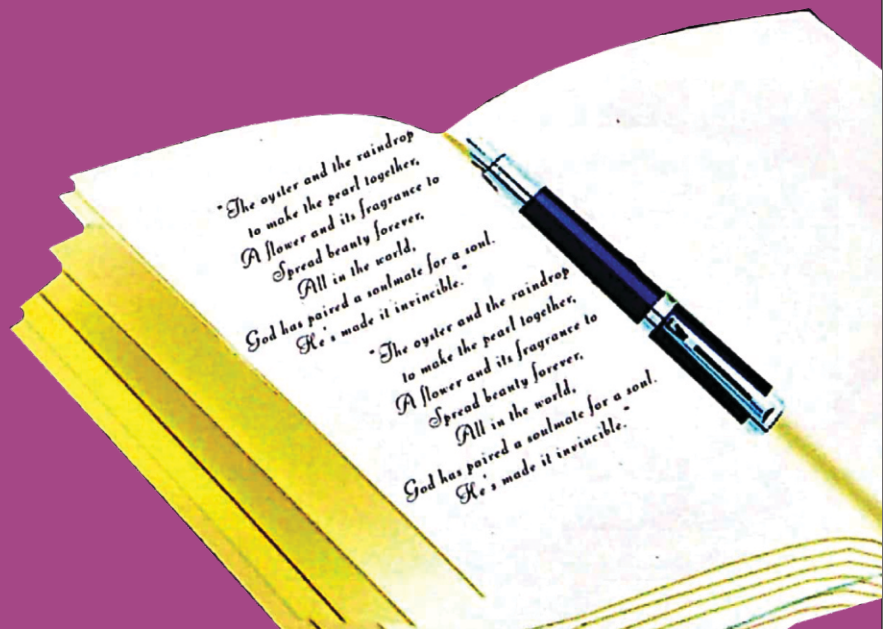 "The oyster and the raindrop
to make the pearl together,
A flower and its fragrance to
Spread beauty forever,
All in the world,
God has paired a soulmate for a soul.
He's made it invincible."
"The oyster and the raindrop
to make the pearl together,
A flower and its fragrance to
Spread beauty forever,
All in the world,
God has paired a soulmate for a soul.
He's made it invincible."